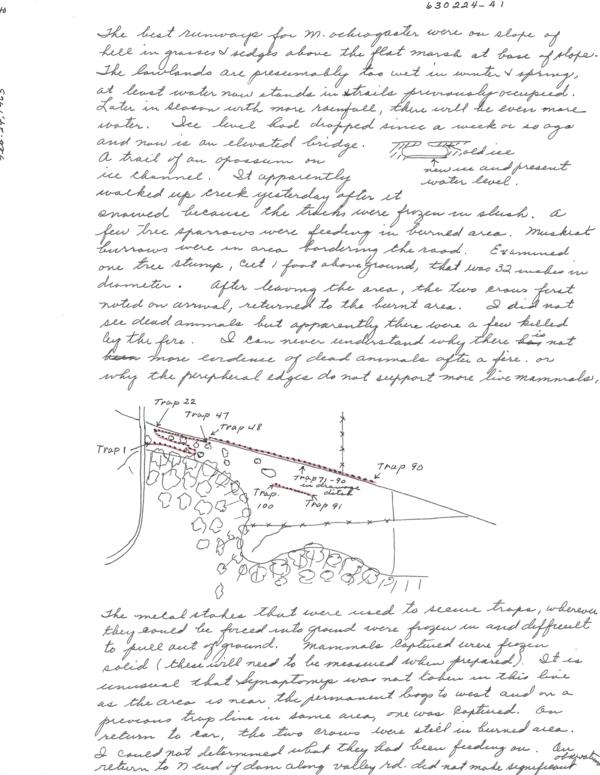 630224-A1
Feb. 24, 1963
The best runways for M. ochrogaster were on slope of
hill in grasses & sedges above the flat marsh at base of slope.
The lowlands are presumably too wet in winter & spring,
at least water now stands in trails previously occupied.
Later in season with more rainfall, there will be even more
water. Ice level had dropped since a week or so ago
and now is an elevated bridge.
old ice
A trail of an opossum on
new ice and present
ice channel. It apparently
water level.
walked up creek yesterday after it
snowed because the tracks were frozen in slush. A
few Tree sparrows were feeding in burned area. Muskrat
burrows were in area bordering the road. Examined
one tree stump, cut 1 foot above ground, that was 32 inches in
diameter. After leaving the area, the two crows first
noted on arrival, returned to the burnt area. I did not
see dead animals but apparently there were a few killed
by the fire. I can never understand why there is not
been more evidence of dead animals after a fire. or
why the peripheral edges do not support more live mammals.
Trap 22
Trap 47
Trap 48
Trap 1
Trap 90
Trap 71-90
in drainage
ditch
Trap
100
Trap 91
The metal stakes that were used to secure traps, wherever
they could be forced into ground were frozen in and difficult
to pull out of ground. Mammals captured were frozen
solid (these will need to be measured when prepared). It is
unusual that Synaptomys was not taken in this line
as the area is near the permanent bogs to west and on a
previous trap line in same area, one was captured. On
return to car, the two crows were still in burned area.
I could not determined what they had been feeding on. On
return to N end of dam along valley rd. did not make significant
observations